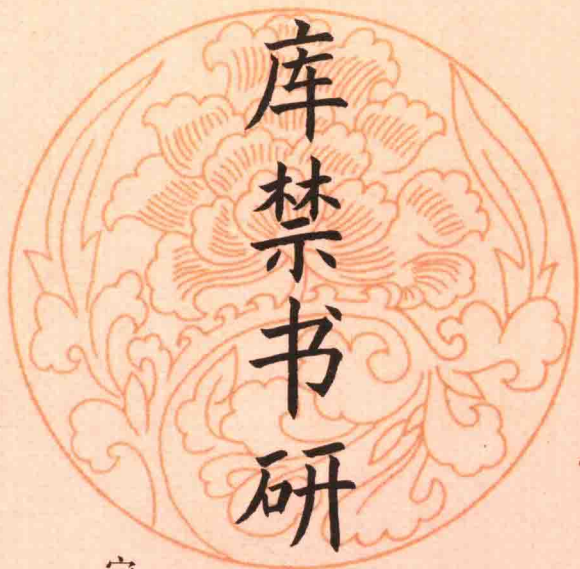 库禁书研